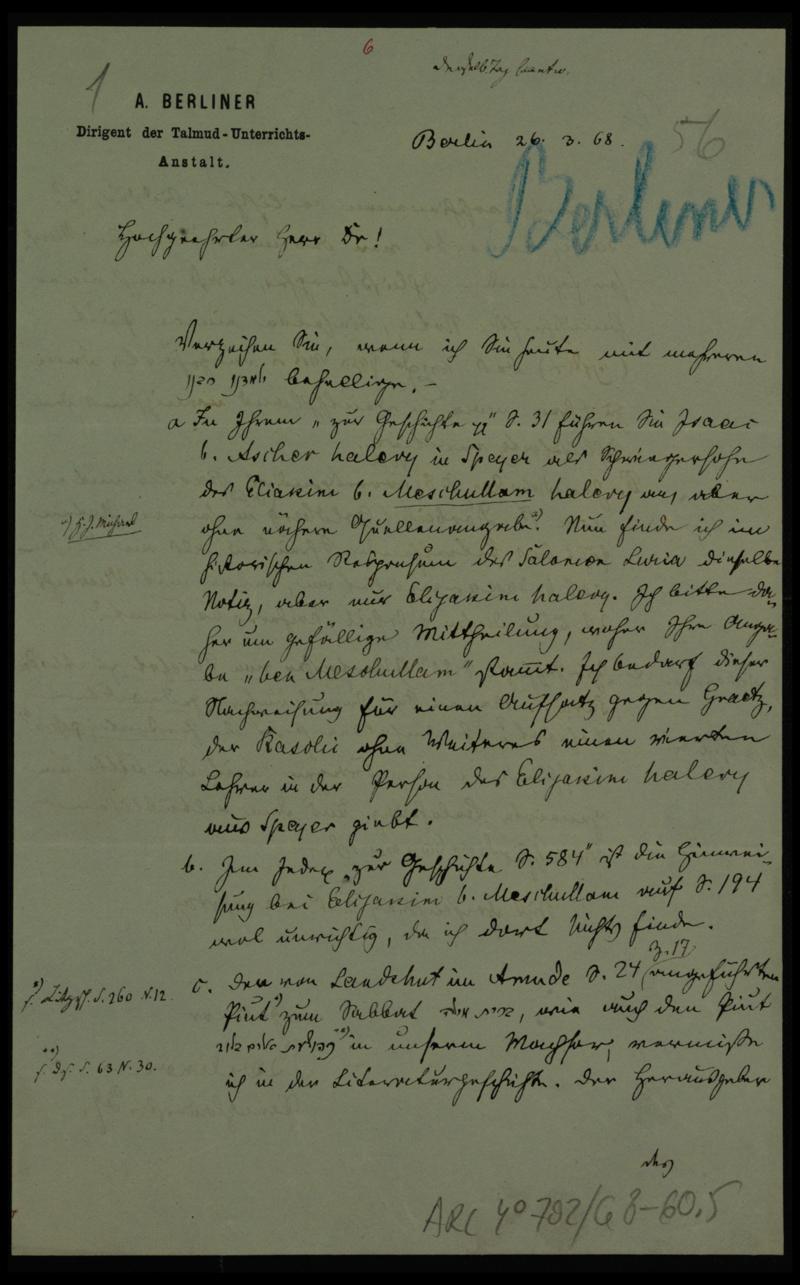 6
1
denselb Tag beantw.
A. BERLINER
Dirigent der Talmud-Unterrichts-
Anstalt.
Berlin 26. 3. 68.
56
Berliner
Hochgeehrter Herr Dr!
Verzeihen Sie, wenn ich Sie heute mit mehreren
behellige. —
a In Ihrem „zur Geschichte" S. 31 führen Sie Isaac
b. Ascher halevy in Speyer als Schwiegersohn
des Eliakim b. Meschullam halevy an, aber
*) H. J. Michael
ohne nähere Quellenangabe*). Nun finde ich im
historischen Responsum des Salomon Luria dieselbe
Notiz, aber nur Elijakim halevy. Ich bitte da-
her um gefällige Mittheilung, woher Ihre Anga-
be „ben Meschullam" stammt. Ich bedarf dieser
Nachweisung für einen Aufsatz gegen Graetz,
der Raschi ohne Weiteres einen vierten
Lehrer in der Person des Elijakim halevy
aus Speyer giebt.
b. Im Index „zur Geschichte S. 584" ist die Hinwei-
sung bei Elijakim b. Meschullam auf S. 194
wol unrichtig, da ich dort Nichts finde.
Z. 17
c. Den von Landshut im Amude S. 24 angeführten
*) s. Litgsch. S. 260 N. 12.
Piut*) zum Sabbat, wie auch den Piut
**) in unserm Machsor, vermisse
**) s. das. S. 63 N. 30.
ich in der Literaturgeschichte. Der Herausgeber
des
ARC 4° 792/G 8-60.5